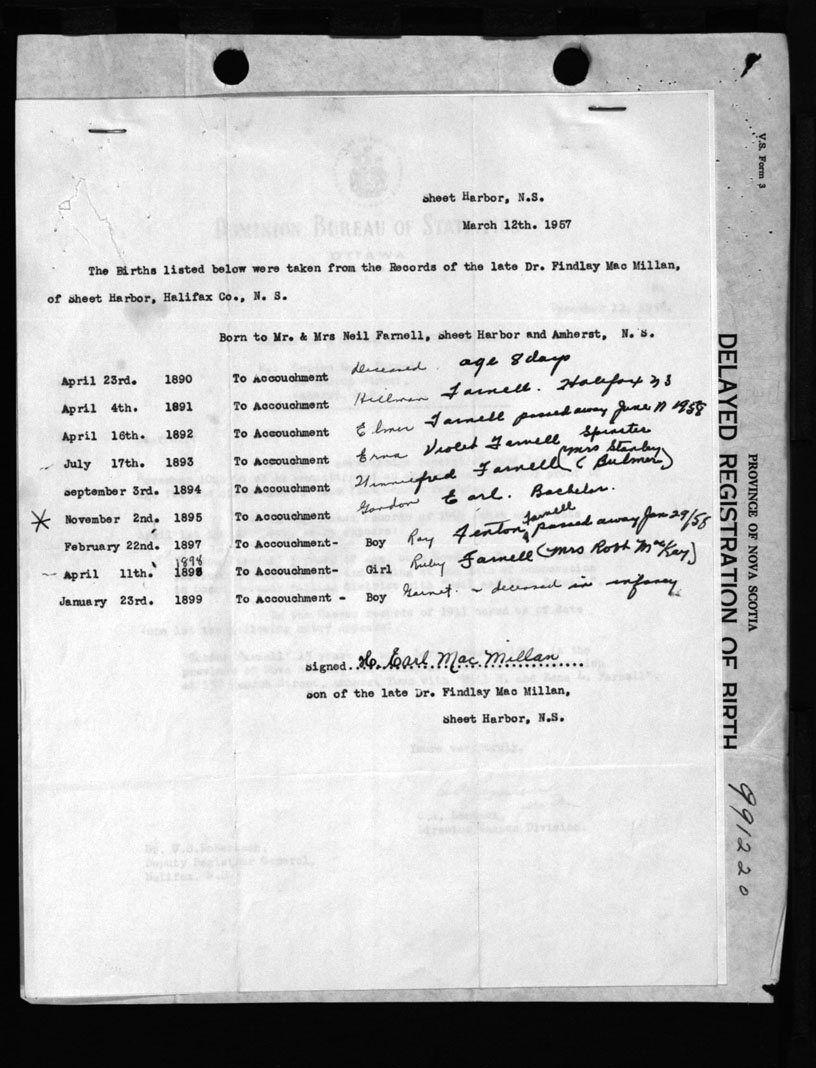 V.S. Form 3
PROVINCE OF NOVA SCOTIA
DELAYED REGISTRATION OF BIRTH
991220
DOMINION BUREAU OF STATISTICS
OTTAWA
Sheet Harbor, N.S.
March 12th. 1957
The Births listed below were taken from the Records of the late Dr. Findlay Mac Millan,
of Sheet Harbor, Halifax Co., N. S.
Born to Mr. & Mrs Neil Farnell, Sheet Harbor and Amherst, N. S.
April 23rd. 1890 To Accouchment deceased. age 8 days
April 4th. 1891 To Accouchment Hillman Farnell. Halifax N S
April 16th. 1892 To Accouchment Elmer Farnell passed away June 17 1958
July 17th. 1893 To Accouchment Erna Violet Farnell Spinster
September 3rd. 1894 To Accouchment Winniefred Farnell (Mrs Stanley Bulmer)
November 2nd. 1895 To Accouchment Gordon Earl. Bachelor.
February 22nd. 1897 To Accouchment- Boy Roy Fenton Farnell passed away Jan 29/58
1898
April 11th. 1898 To Accouchment- Girl Ruby Farnell (Mrs Robt MacKay)
January 23rd. 1899 To Accouchment - Boy Garnet. - deceased in infancy
Signed..H. Earl Mac Millan......
Son of the late Dr. Findlay Mac Millan,
Sheet Harbor, N.S.
Director Census Division.
Deputy Registrar General,
Halifax, N.S.